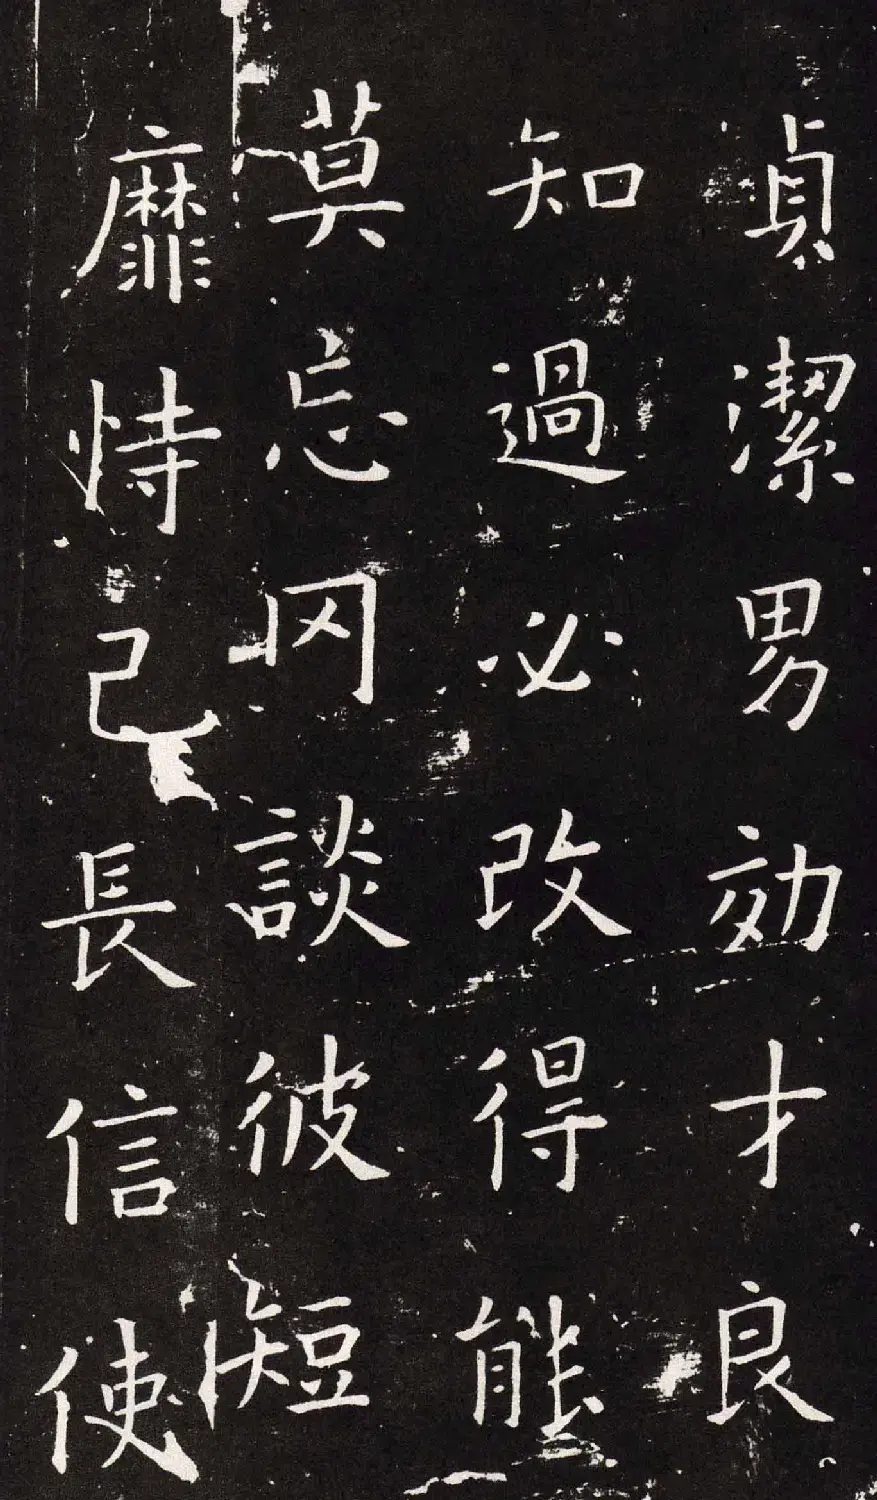 貞潔男効才良
知過必改得能
莫忘罔談彼短
靡恃己長信使